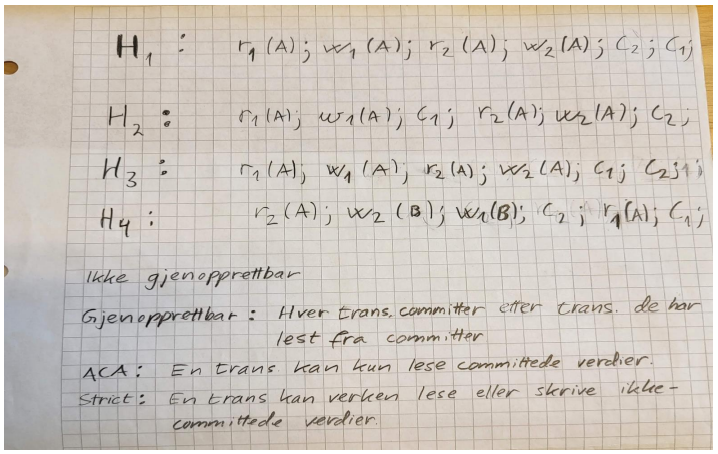 H₁ : r₁(A); w₁(A); r₂(A); w₂(A); C₂; C₁;
H₂ : r₁(A); w₁(A); C₁; r₂(A); w₂(A); C₂;
H₃ : r₁(A); w₁(A); r₂(A); w₂(A); C₁; C₂;
H₄ : r₂(A); w₂(B); w₁(B); C₂; r₁(A); C₁;
Ikke gjenopprettbar
Gjenopprettbar : Hver trans. committer etter trans. de har
lest fra committer
ACA : En trans kan kun lese committede verdier.
Strict : En trans kan verken lese eller skrive ikke-
committede verdier.